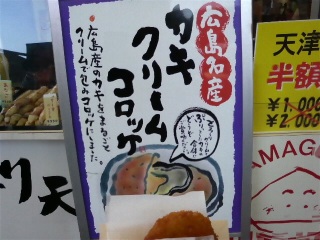 広島名産
カキ
クリーム
コロッケ
広島産のカキをまるごと、
クリームで包みコロッケにしました。
天津
半額
￥1,000
￥2,000
り天
AMAG